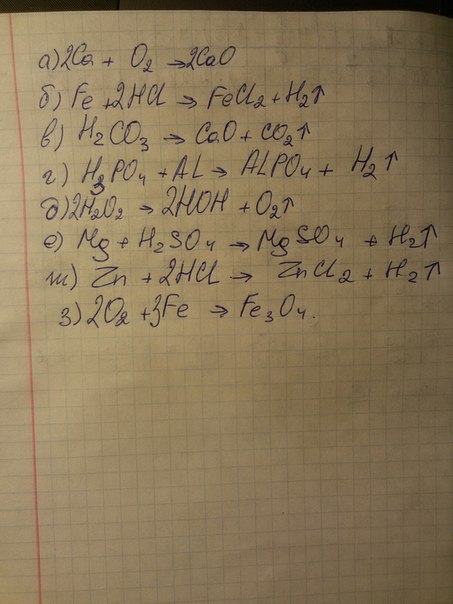 а) 2Ca + O2 → 2CaO
б) Fe + 2HCl → FeCl2 + H2↑
в) H2CO3 → CaO + CO2↑
г) H3PO4 + AL → ALPO4 + H2↑
д) 2H2O2 → 2HOH + O2↑
е) Mg + H2SO4 → MgSO4 + H2↑
ж) Zn + 2HCl → ZnCl2 + H2↑
з) 2O2 + 3Fe → Fe3O4.